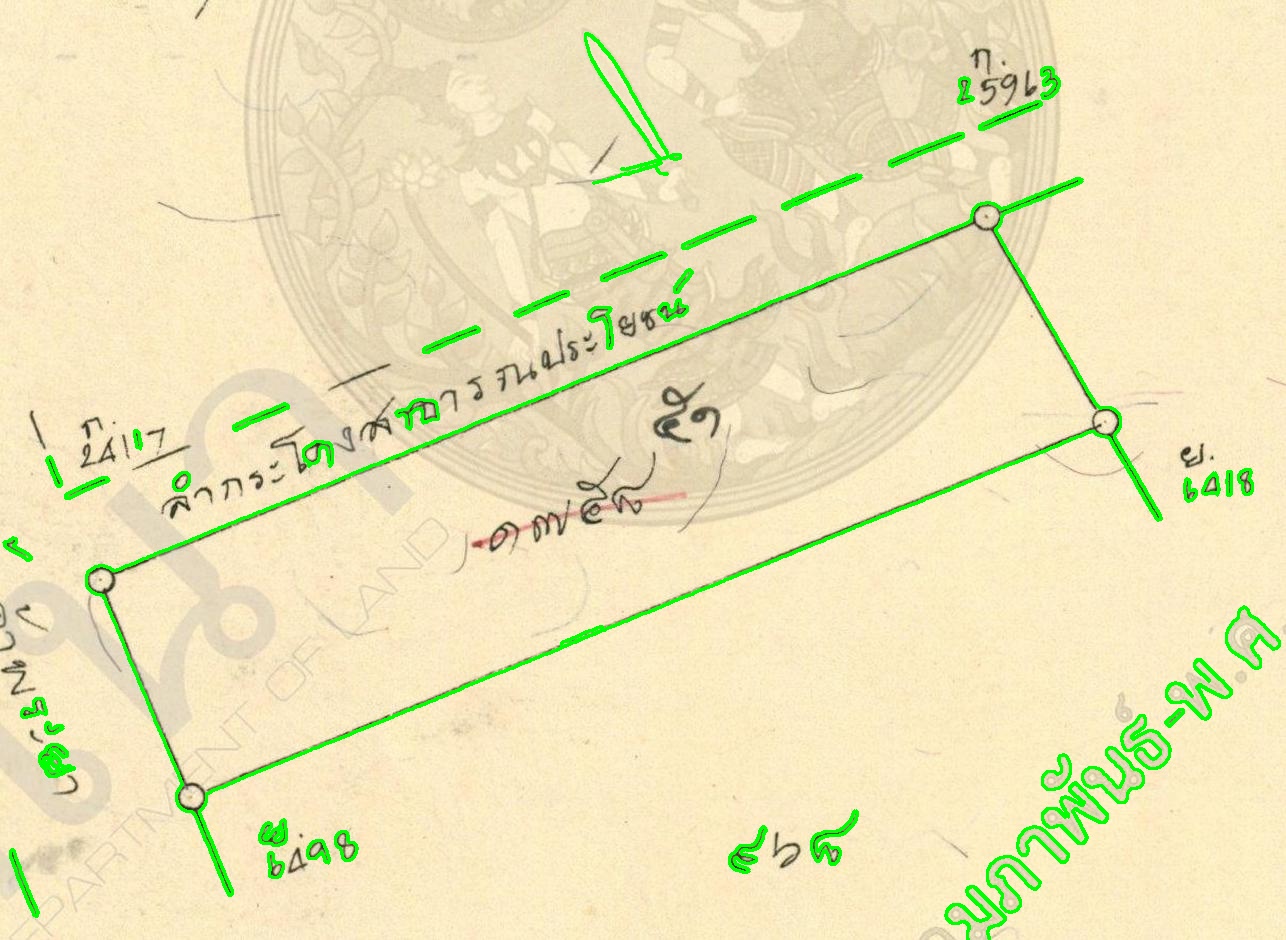 ก.
25963
ก.
24117
ลำกระโดงสาธารณประโยชน์
๕๑
๑๗๕๘
ย.
6418
ย.
6498
๙๖๘
DEPARTMENT OF LAND
มภาพันธ์-พ.ศ